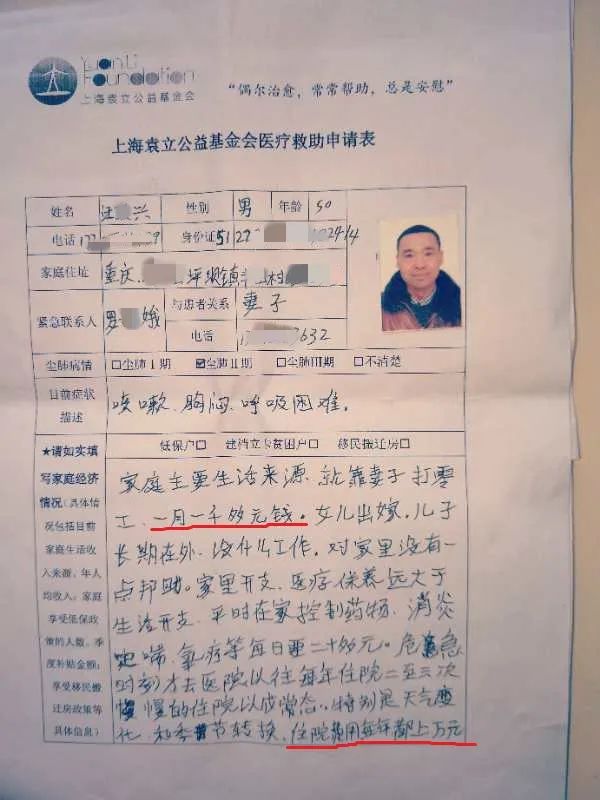 Yuanli
Foundation
上海袁立公益基金会
“偶尔治愈，常常帮助，总是安慰”
上海袁立公益基金会医疗救助申请表
姓名 汪 兴 性别 男 年龄 50
电话 身份证 51 2414
家庭住址 重庆. 坪 镇 村
紧急联系人 罗 娥 与患者关系 妻子
电话 7632
尘肺病情 □尘肺I期 ☑尘肺II期 □尘肺III期 □不清楚
目前症状
描述
咳嗽、胸闷、呼吸困难。
★请如实填
写家庭经济
情况（具体情
况包括目前
家庭生活收
入来源、年人
均收入、家庭
享受低保政
策的人数、季
度补贴金额；
享受移民搬
迁房政策等
具体信息）
低保户□ 建档立卡贫困户□ 移民搬迁房□
家庭主要生活来源、就靠妻子打零
工、一月一千多元钱。女儿出嫁、儿子
长期在外、没什么工作、对家里没有一
点邦助。家里开支、医疗、保养远大于
生活开支、平时在家控制药物、消炎
定喘、氧疗等每日要二十多元。危急
时刻才去医院以往每年住院二至三次
慢慢的住院以成常态。特别是天气变
化、和季节转换、住院费用每年都上万元